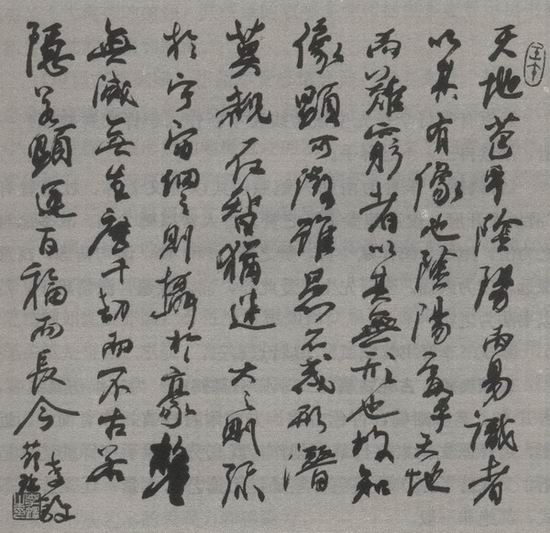 天地苞乎陰陽而易識者
以其有像也陰陽處乎天地
而難窮者以其無形也故知
像顯可徵雖愚不惑形潛
莫覩在智猶迷大之則弥
於宇宙細之則攝於豪釐
無滅無生歷千劫而不古若
隱若顯運百福而長今